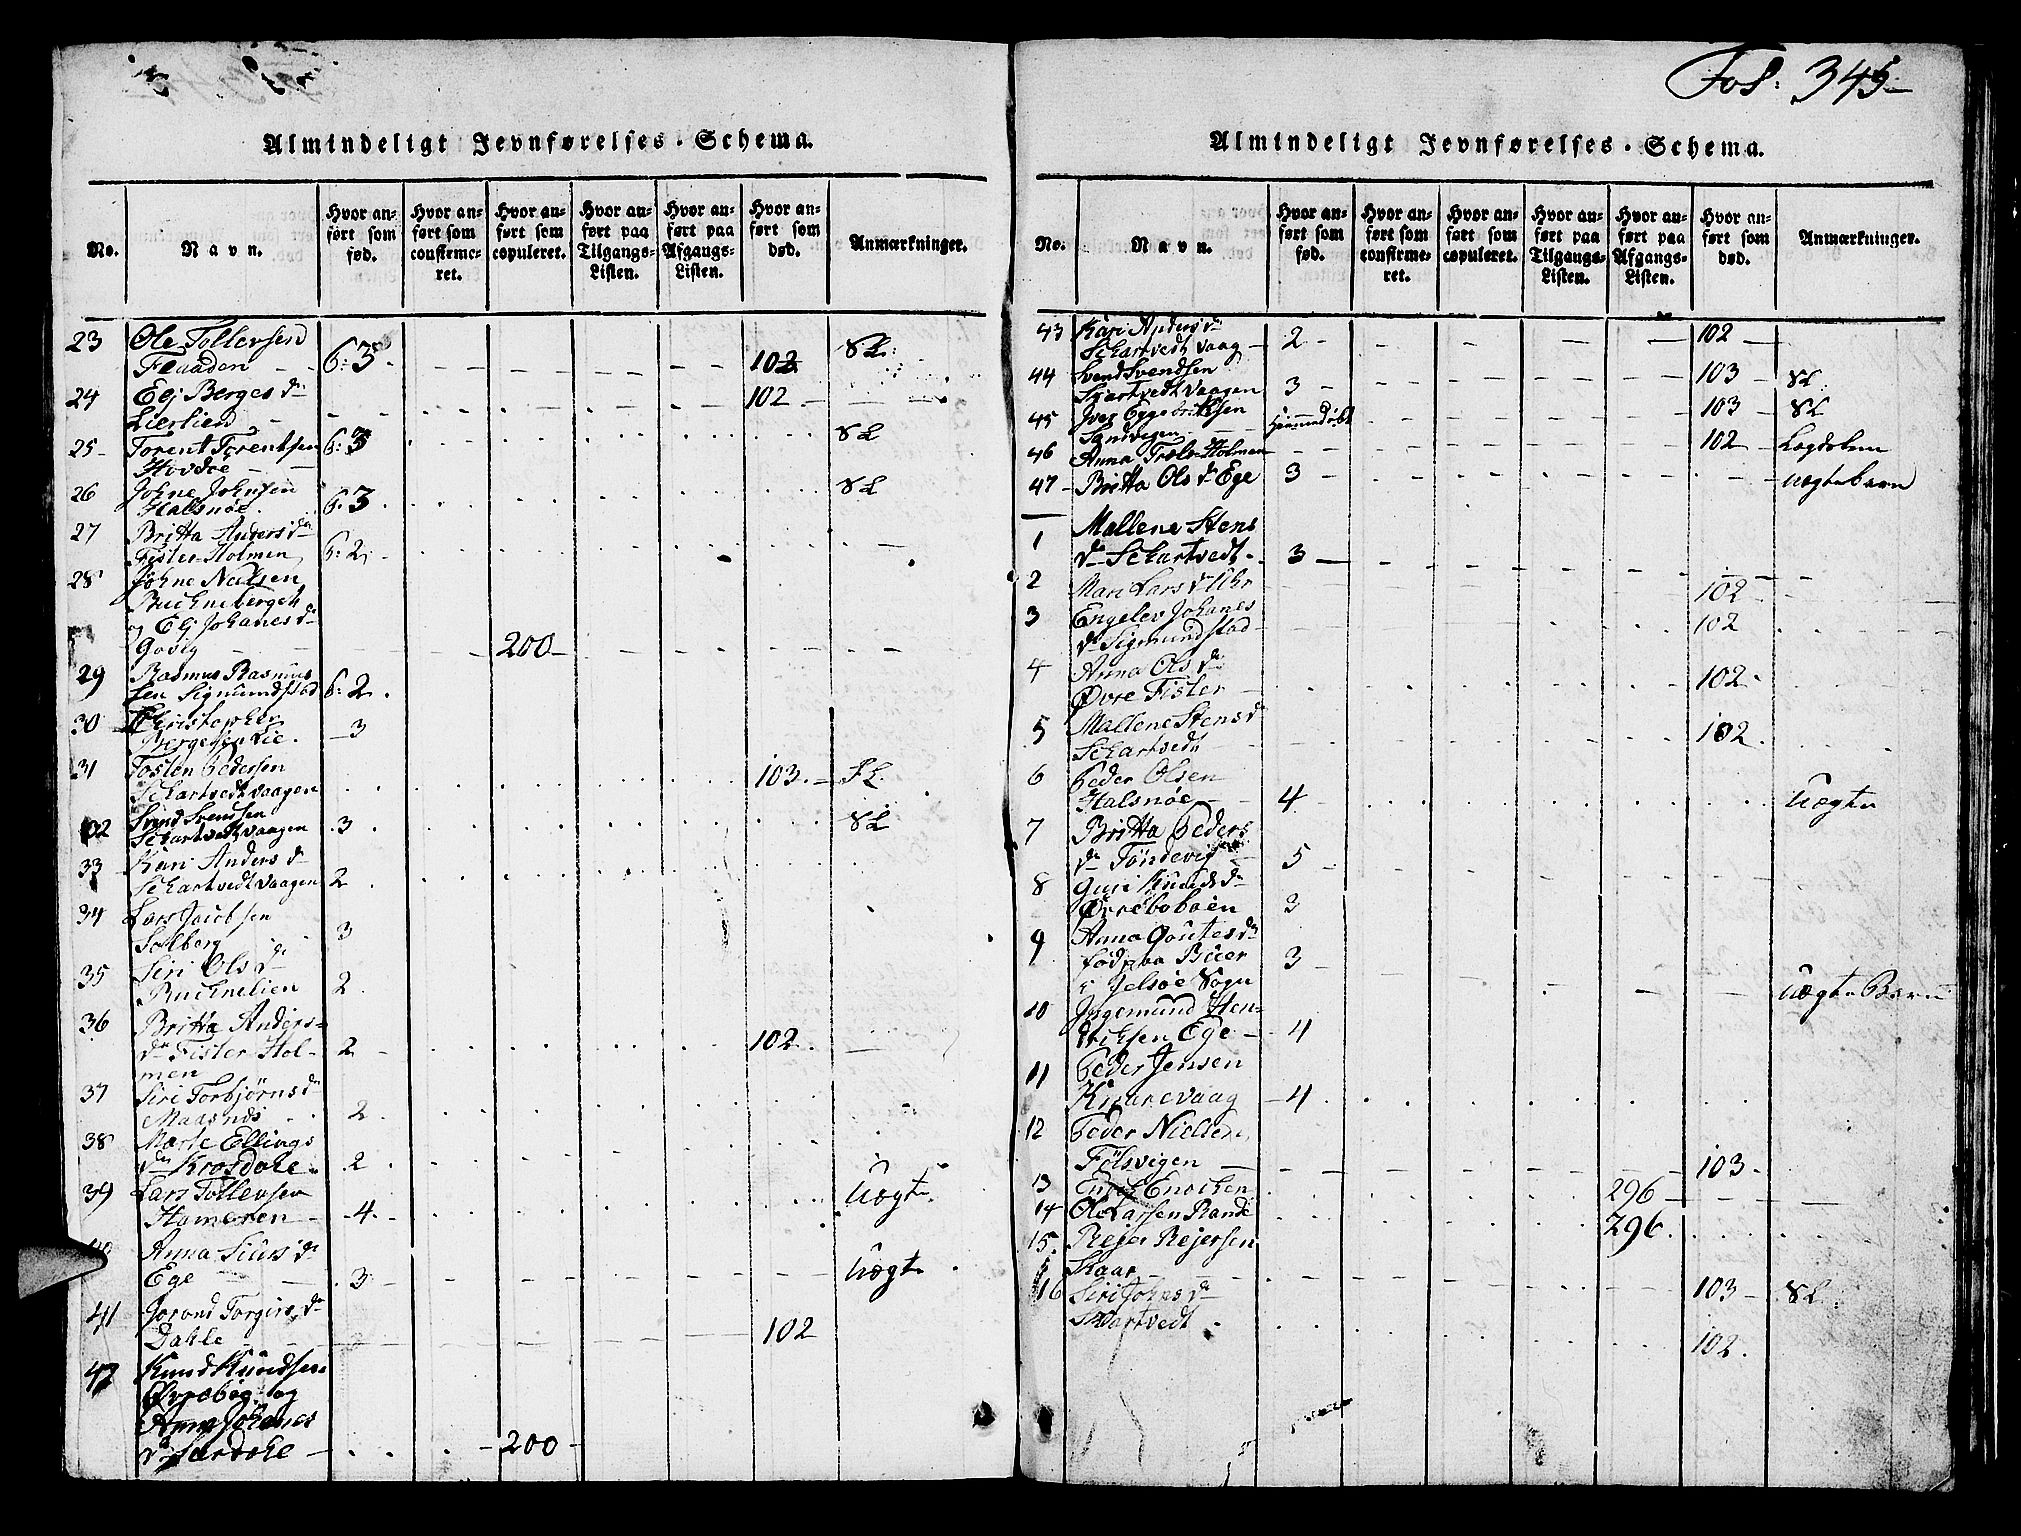 Fol: 345
Almindeligt Jevnførelses-Schema.
No.
Navn.
Hvor anført som fød.
Hvor anført som confirmeret.
Hvor anført som copuleret.
Hvor anført paa Tilgangs-Listen.
Hvor anført paa Afgangs-Listen.
Hvor anført som død.
Anmærkninger.
23 Ole Tollevsen
6: 3. 102 SL:
24 Elj Berges dr
Lierlien 102
25 Torent Torentsen 6: 3 SL
Hovdoe
26 Johne Johnsen
Halsnøe 6: 3 SL
27 Britta Anders dr
Fister Holmen 6: 2
28 Johne Nielsen
og Elj Johanes dr
200
29 Rasmus Rasmus
sen Sigmundstad 6: 2.
30 Christopher
Bergesen Lie. 3
31 Tosten Pedersen
Schartvedt vaagen 103. SL.
Svend Svensen
Schartvedt vaagen 3 SL
33 Kari Anders d
Schartvedt vaagen 2
34 Lars Jacobsen
Solberg 3
35 Siri Ols dr
2
36 Britta Anders-
dr Fister Hol-
men 2 102
37 Siri Torbjørns dr
Maasnæs 2
38 Marte Ellings
dr Krosdale 2
39 Lars Tollevsen
4 Uægte
Anna Siurs dr
Ege 3 Uægte
41 Jorond Torgirs dr
Dahle 102
42 Knud Knudsen
og
Anna Johanes
dr 200
Almindeligt Jevnførelses-Schema.
No.
Navn.
Hvor anført som fød.
Hvor anført som confirmeret.
Hvor anført som copuleret.
Hvor anført paa Tilgangs-Listen.
Hvor anført paa Afgangs-Listen.
Hvor anført som død.
Anmærkninger.
43 Kari Anders dr
Schartvedt vaag 2 102
44 Svend Svendsen
Sjartvedt vaagen 3 103 SL
45 Iver Eggebriktsen
Sandvigen 103 SL
46 Anna Trols-Holmen 102
47 Britta Ols dr Ege 3 uægte barn
1 Mallene Stens
dr Schartvedt. 3
2 Mari Lars dr 102
3 Engelev Johanes
dr Sigmundstad 102
4 Anna Ols dr
Øvre Fister 102
5 Mallene Stens dr
Schartvedt 102
6 Peder Olsen
Halsnøe 4 Uægte
7 Britta Peders
dr Tøndevig 5
8 Guri Knuds dr
3
9 Anna Goutes dr
fød paa Buer
i Jelsøe Sogn 3 Uægte Barn
10 Ingemund Hen-
driksen Ege 4
11 Peder Jensen
Knarevaag 4
12 Peder Nielsen
Følsvigen 103
13 Enochsen 296
14 Ole Larsen Rande 296.
15 Rejer Rejersen
Skaar 103 SL
16 Siri Johns dr
Skartvedt 102.